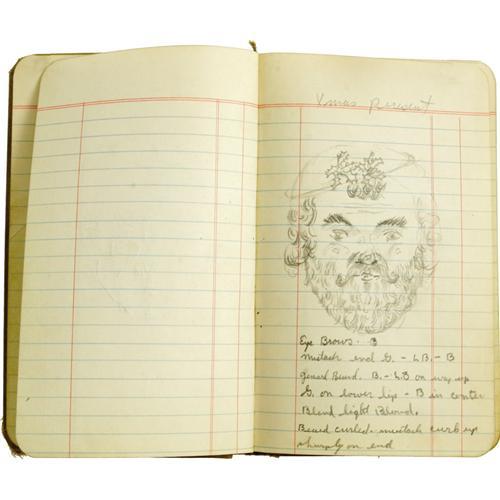 Xmas Present
Eye Brows. B
Mustach end G. - L.B. - B
Beard. B. - L.B on way up
G. on lower lip - B in center
Blend light Blond.
Beard curled. mustach curb up
sharply on end